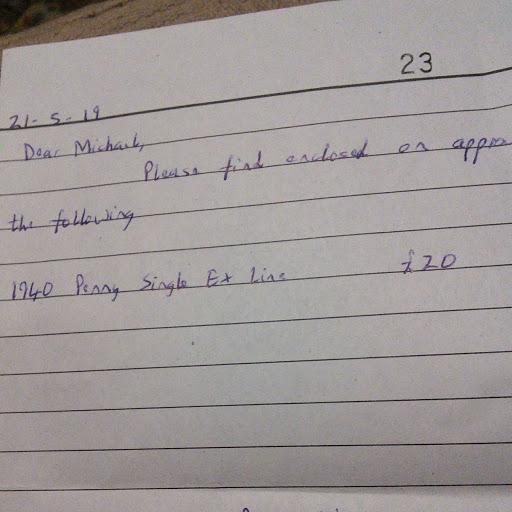 23
21-5-19
Dear Michael,
Please find enclosed on appro
the following
1940 Penny Single Ex Line £20